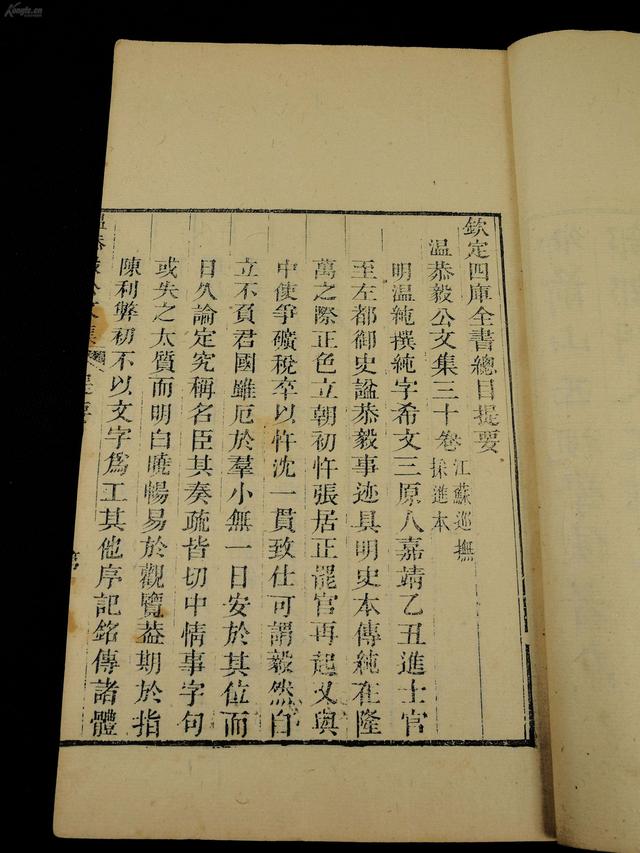 欽定四庫全書總目提要
温恭毅公文集三十卷 江蘇巡撫採進本
明温純撰純字希文三原人嘉靖乙丑進士官
至左都御史謚恭毅事迹具明史本傳純在隆
萬之際正色立朝初忤張居正罷官再起又與
中使爭礦稅卒以忤沈一貫致仕可謂毅然自
立不負君國雖厄於羣小無一日安於其位而
日久論定究稱名臣其奏疏皆切中情事字句
或失之太質而明白曉暢易於觀覽葢期於指
陳利弊初不以文字爲工其他序記銘傳諸體
Kongfz.cn